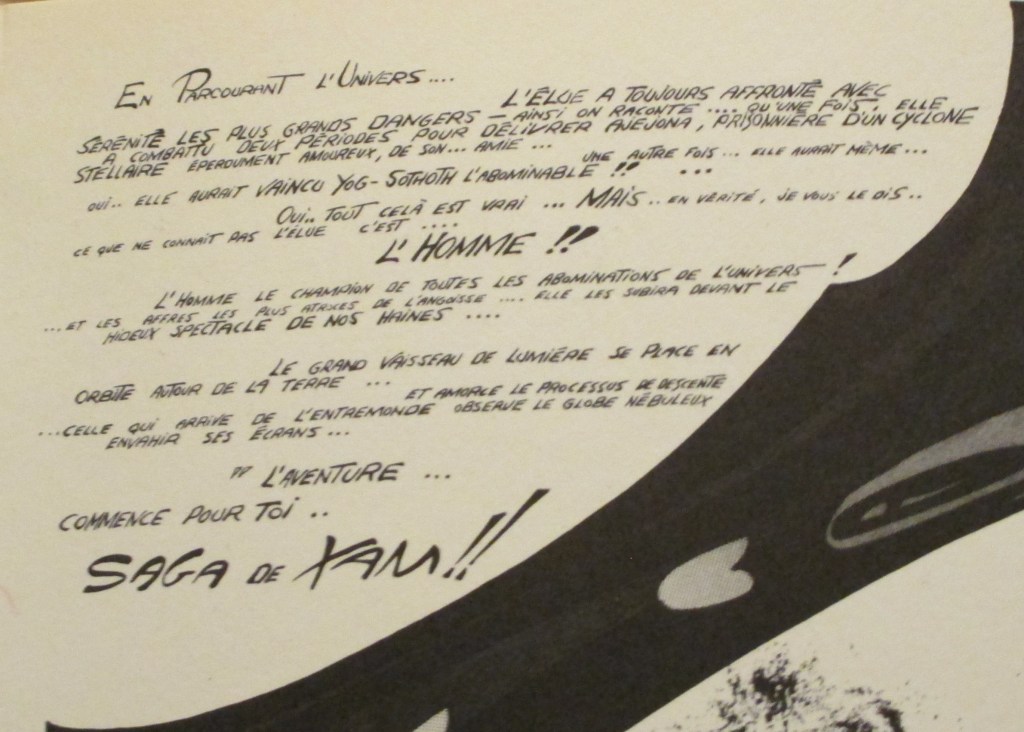 En Parcourant l'Univers....
L'Élue a toujours affronté avec
sérénité les plus grands dangers — ainsi on raconte .... qu'une fois, elle
a combattu deux périodes pour délivrer Anejona, prisonnière d'un cyclone
stellaire éperdument amoureux, de son... amie ...
une autre fois... elle aurait même...
oui.. elle aurait vaincu Yog-Sothoth l'abominable !! ...
Oui.. tout celà est vrai ... MAIS.. en vérité, je vous le dis..
ce que ne connait pas l'élue c'est ....
L'HOMME !!
L'Homme le champion de toutes les abominations de l'univers — !
...et les affres les plus atroces de l'angoisse .... elle les subira devant le
hideux spectacle de nos haines ....
Le grand vaisseau de lumière se place en
orbite autour de la terre ...
et amorce le processus de descente
...celle qui arrive de l'entremonde observe le globe nébuleux
envahir ses écrans...
" L'aventure ...
commence pour toi ..
SAGA de XAM!!